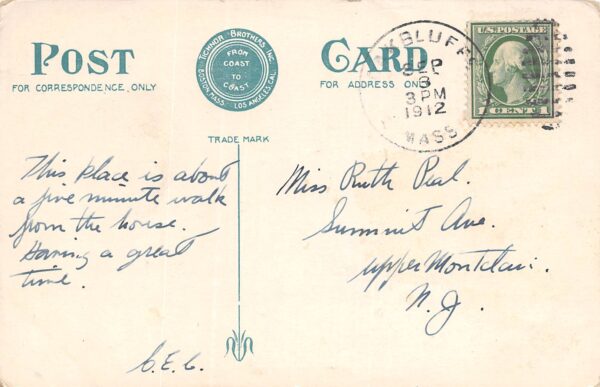 POST CARD
TICHNOR BROTHERS INC.
FROM COAST TO COAST
BOSTON MASS. LOS ANGELES CAL.
FOR CORRESPONDENCE ONLY
FOR ADDRESS ONLY
TRADE MARK
K BLUFFS
SEP
3 PM
1912
MASS
U.S. POSTAGE
1 CENT 1
This place is about
a five minute walk
from the house.
Having a great
time.
Miss Ruth Peal.
Summit Ave.
Upper Montclair.
N. J.